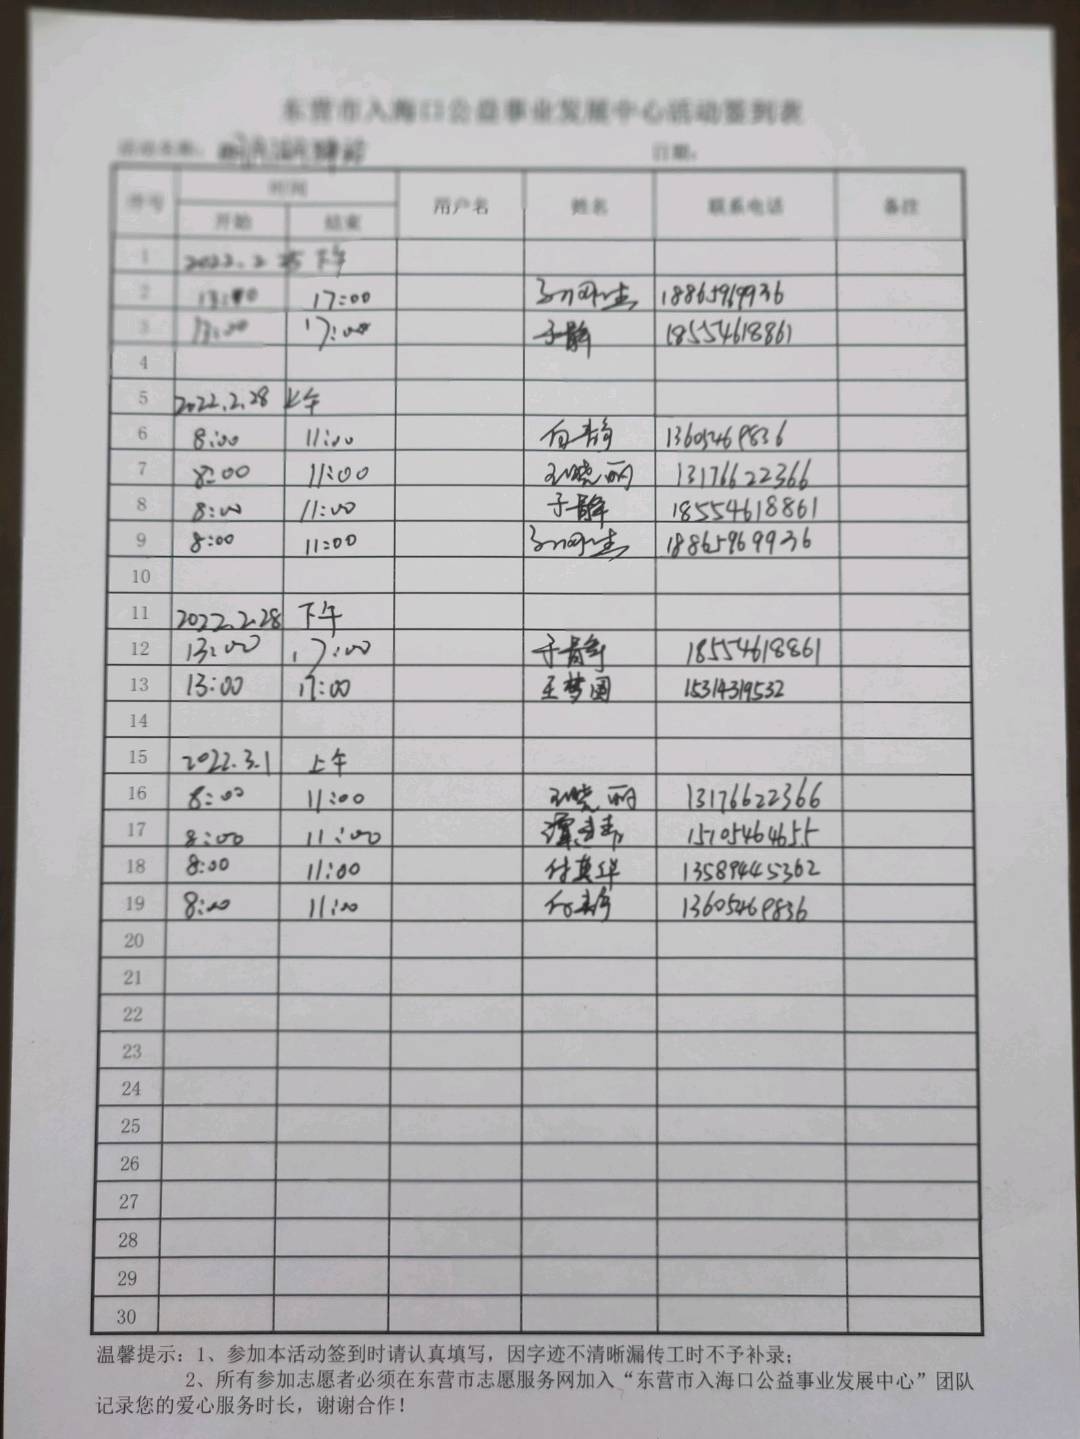 东营市入海口公益事业发展中心活动签到表
活动名称： 日期：
序号 时间 用户名 姓名 联系电话 备注
开始 结束
1 2022.2 下午
2 17:00 18865969936
3 13:00 17:00 于静 18554618861
4
5 2022.2.28 上午
6 8:00 11:00 付春海 13605469836
7 8:00 11:00 王晓丽 13176622366
8 8:00 11:00 于静 18554618861
9 8:00 11:00 18865969936
10
11 2022.2.28 下午
12 13:00 17:00 于静 18554618861
13 13:00 17:00 王梦圆 15314319532
14
15 2022.3.1 上午
16 8:00 11:00 王晓丽 13176622366
17 8:00 11:00 15105464655
18 8:00 11:00 付英华 13589445362
19 8:00 11:00 13605469836
20
21
22
23
24
25
26
27
28
29
30
温馨提示：1、参加本活动签到时请认真填写，因字迹不清晰漏传工时不予补录；
2、所有参加志愿者必须在东营市志愿服务网加入“东营市入海口公益事业发展中心”团队
记录您的爱心服务时长，谢谢合作！